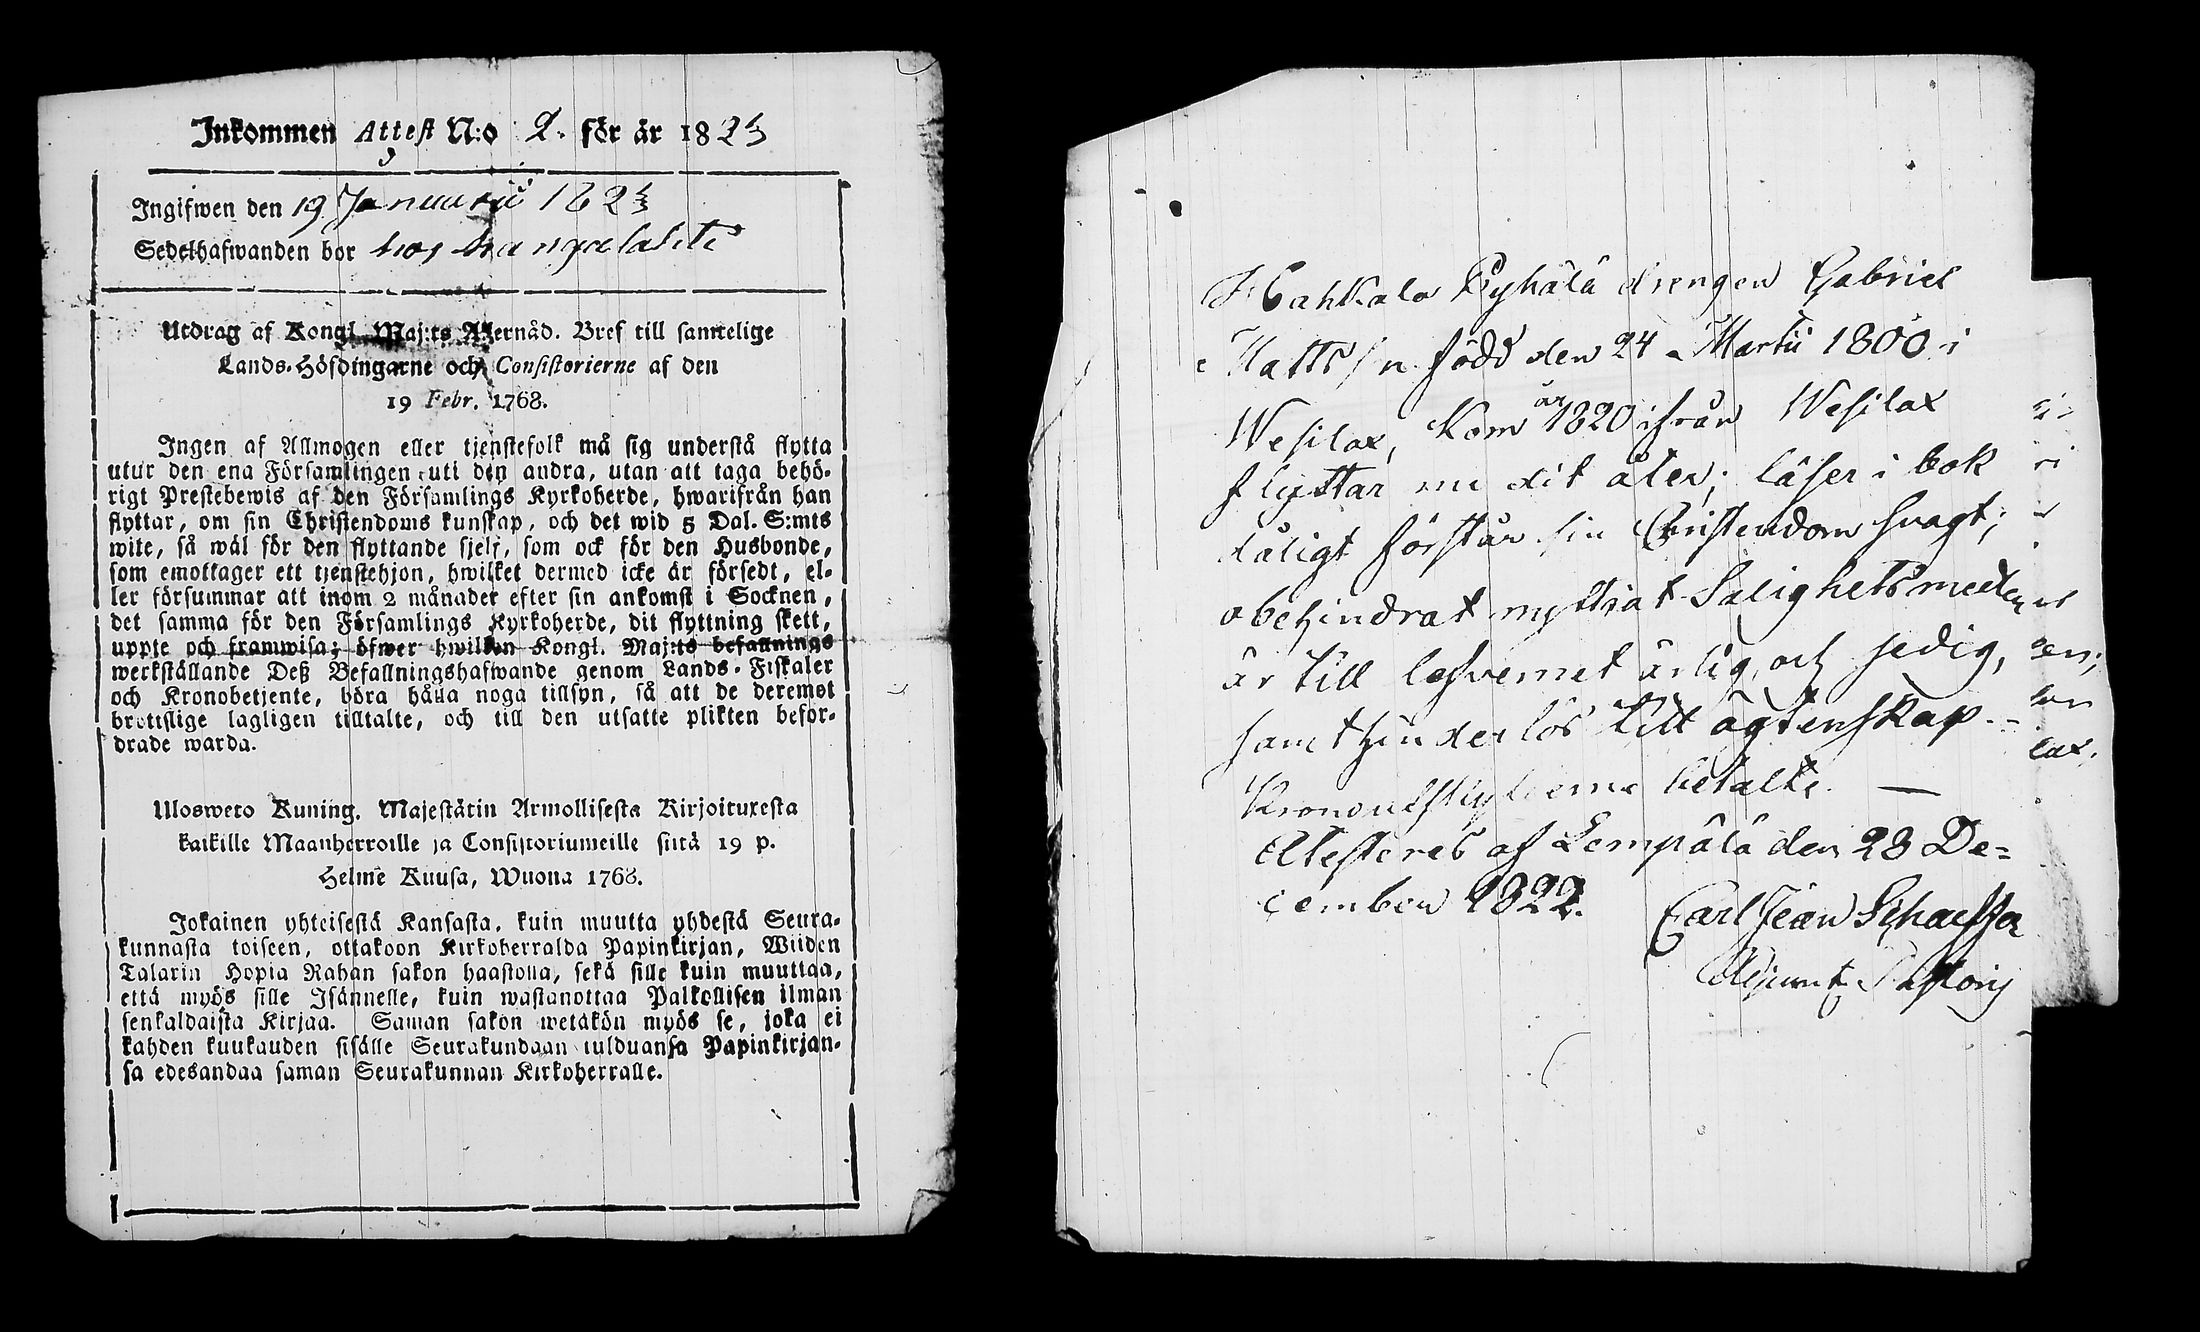 Inkommen Attest N:o 2. för år 1823
Ingifwen den 19 Januarii 1823
Sedelhafwanden bor hos
Utdrag af Kongl. Maj:ts Allernåd. Bref till samtelige
Lands-Höfdingarne och Consistorierne af den
19 Febr. 1768.
Ingen af Allmogen eller tjenstefolk må sig understå flytta
utur den ena Församlingen uti den andra, utan att taga behö-
rigt Prestebewis af den Församlings Kyrkoherde, hwarifrån han
flyttar, om sin Christendoms kunskap, och det wid 5 Dal. S:mts
wite, så wäl för den flyttande sjelf, som ock för den Husbonde,
som emottager ett tjenstehjon, hwilket dermed icke är försedt, el-
ler försummar att inom 2 månader efter sin ankomst i Socknen,
det samma för den Församlings Kyrkoherde, dit flyttning skett,
uppte och framwisa; öfwer hwilken Kongl. Maj:ts befallnings
werkställande Deß Befallningshafwande genom Lands-Fiskaler
och Kronobetjente, böra hålla noga tillsyn, så att de deremot
brottslige lagligen tilltalte, och till den utsatte plikten befor-
drade warda.
Ulosweto Kuning. Majestätin Armollisesta Kirjoituxesta
kaikille Maanherroille ja Consistoriumeille siitä 19 p.
Helme Kuusa, Wuona 1768.
Jokainen yhteisestä Kansasta, kuin muutta yhdestä Seura-
kunnasta toiseen, ottakoon Kirkoherralda Papinkirjan, Wiiden
Talarin Hopia Rahan sakon haastolla, sekä sille kuin muuttaa,
että myös sille Isännelle, kuin wastanottaa Palkollisen ilman
senkaldaista Kirjaa. Saman sakon wetäkön myös se, joka ei
kahden kuukauden sisälle Seurakundaan tulduansa Papinkirjan-
sa edesandaa saman Seurakunnan Kirkoherralle.
Hahkala Pyhälä drengen Gabriel
Matts/n född den 24 Martii 1800 i
Wesilax, Kom år 1820 ifrån Wesilax
flyttar nu dit åter; läser i bok
dåligt förstår sin Christendom svagt;
obehindrat nyttjat Salighetsmedlen
är till lefvernet ärlig och sedig,
samt hinderlös till ägtenskap.
Kronoutskylderne betalte. —
Attesteras af Lempälä den 28 De=
cember 1822.
Carl Jean Schaeffer
Adjunct Pastoris